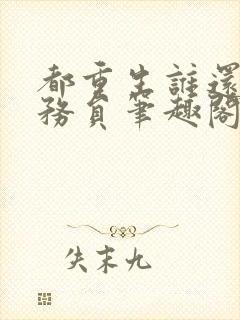 都重生誰還
務員筆趣閣
失末九